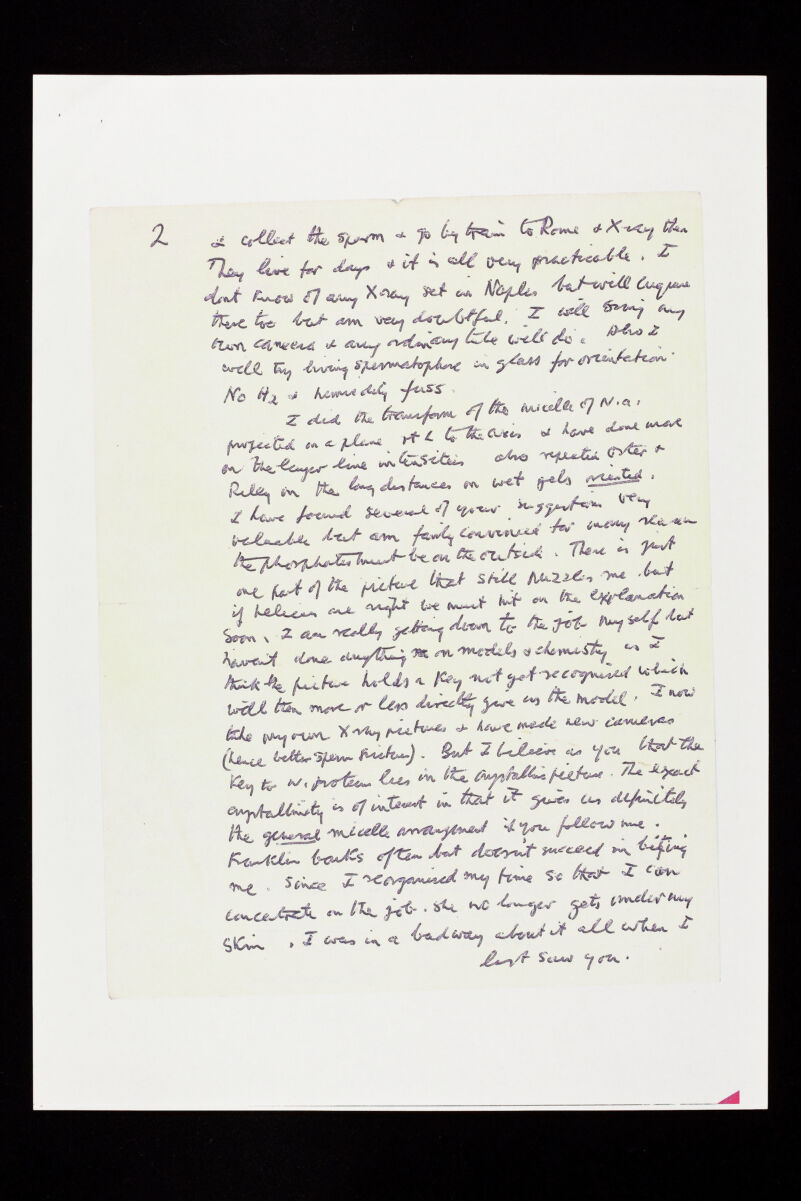 2
& collect the sperm & go by train to Rome & X ray then
They live for days & it is all very practicable. I
dont know of any X ray set in Naples but will enquire
there too but am very doubtful. I will bring my
own camera & any ordinary tube will do. Also I
will try living spermatophore in glass for orientation.
No H2 & humidity fuss.
I did the transform of the micelle of N.a.
projected on a plane rt L to the axis & have done more
on the layer line intensities also repeated Oster &
Riley on the long distances on wet gels oriented.
I have found several of your suggestions very
valuable but am fairly convinced for many reasons
the phosphates must be on the outside. There is just
one part of the picture that still puzzles me but
if helices are right we must hit on the explanation
soon. I am really getting down to the job myself but
haven't done anything on models & chemistry as I
think the picture holds a key not yet recognised which
will then more or less directly give us the model. I now
take my own X ray pictures & have made new cameras
(hence better sperm pictures). But I believe as you that the
key to n. protein lies in the crystalline picture. The exact
crystallinity is of interest in that it gives us definitely
the general micelle arrangement if you follow me.
Franklin barks often but doesn't succeed in biting
me. Since I reorganised my time so that I can
concentrate on the job. she no longer gets under my
skin. I was in a bad way about it all when I
last saw you.